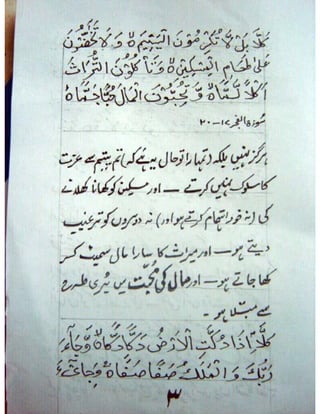 كَلَّا بَلْ لَا تُكْرِمُوْنَ الْيَتِيْمَ ۙ وَ لَا تَحٰٓضُّوْنَ
عَلٰى طَعَامِ الْمِسْكِيْنِ ۙ وَ تَأْكُلُوْنَ التُّرَاثَ
اَكْلًا لَّمًّا ۙ وَّ تُحِبُّوْنَ الْمَالَ حُبًّا جَمًّا ۙ
سورة الفجر ١٧-٢٠
ہرگز نہیں بلکہ (تمہارا تو حال یہ ہے کہ) تم یتیم سے عزت
کا سلوک نہیں کرتے – اور مسکین کو کھانا کھلانے
کی (نہ خود اہتمام کرتے ہو اور) نہ دوسروں کو ترغیب
دیتے ہو – اور میراث کا سارا مال سمیٹ کر
کھا جاتے ہو – اور مال کی محبّت میں بُری طرح
سے مبتلا ہو –
كَلَّآ اِذَا دُكَّتِ الْاَرْضُ دَكًّا دَكًّا ۙ وَّ جَآءَ
رَبُّكَ وَ الْمَلَكُ صَفًّا صَفًّا ۚ وَ جِایْٓءَ
٣